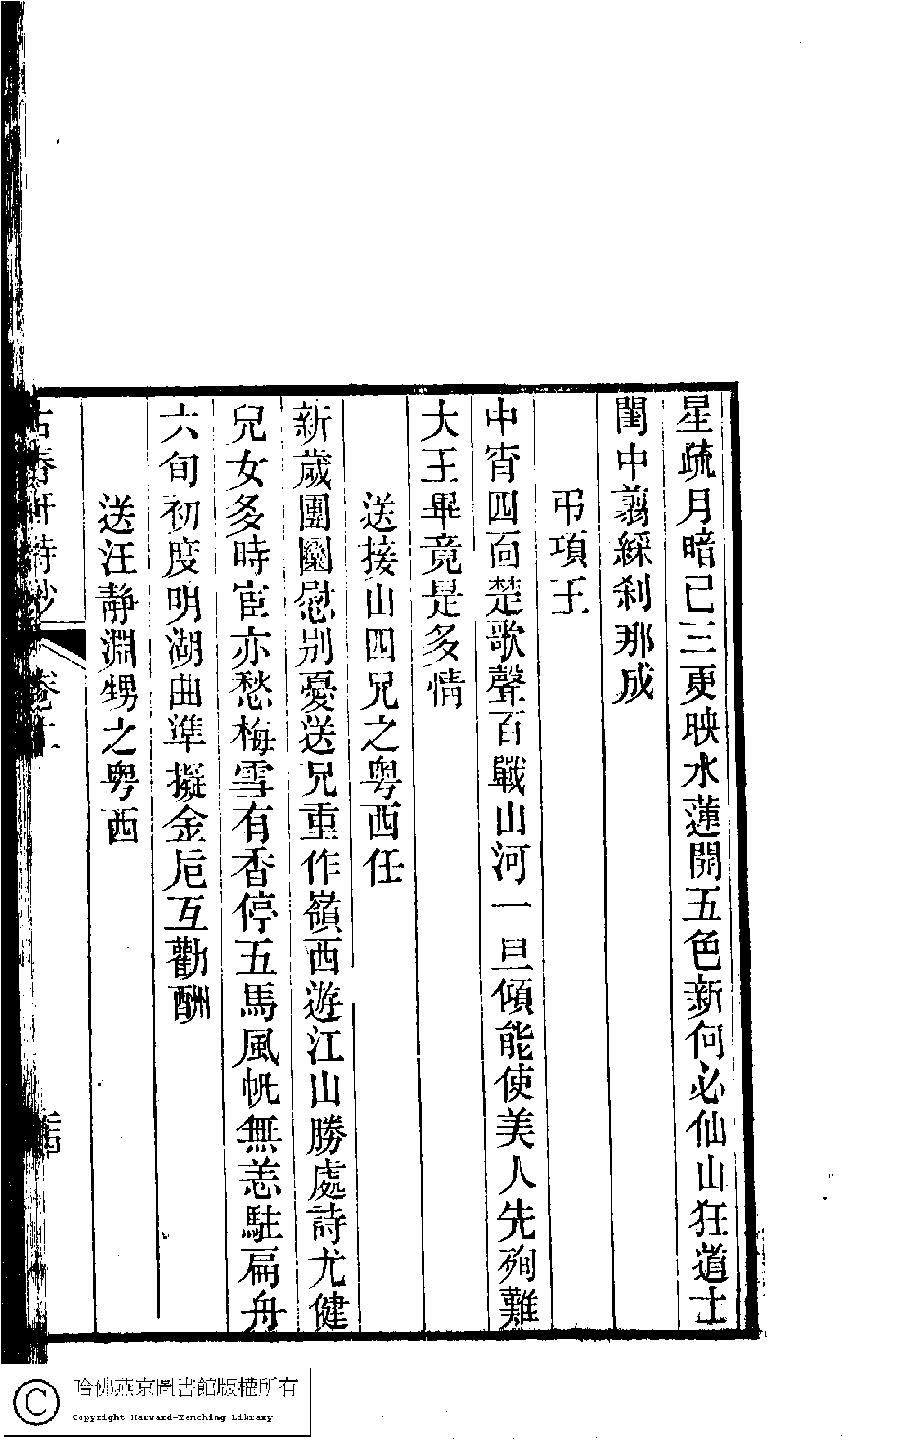 星疏月暗已三更映水蓮開五色新何必仙山狂道士
閨中翦綵刹那成
弔項王
中宵四面楚歌聲百戰山河一旦傾能使美人先殉難
大王畢竟是多情
送接山四兄之粤西任
新歲團圞慰別憂送兄重作嶺西遊江山勝處詩尤健
兒女多時宦亦愁梅雪有香停五馬風帆無恙駐扁舟
六旬初度明湖曲準擬金卮互勸酬
送汪靜淵甥之粤西
古春軒詩鈔
哈佛燕京圖書館版權所有
Copyright Harvard-Yenching Library